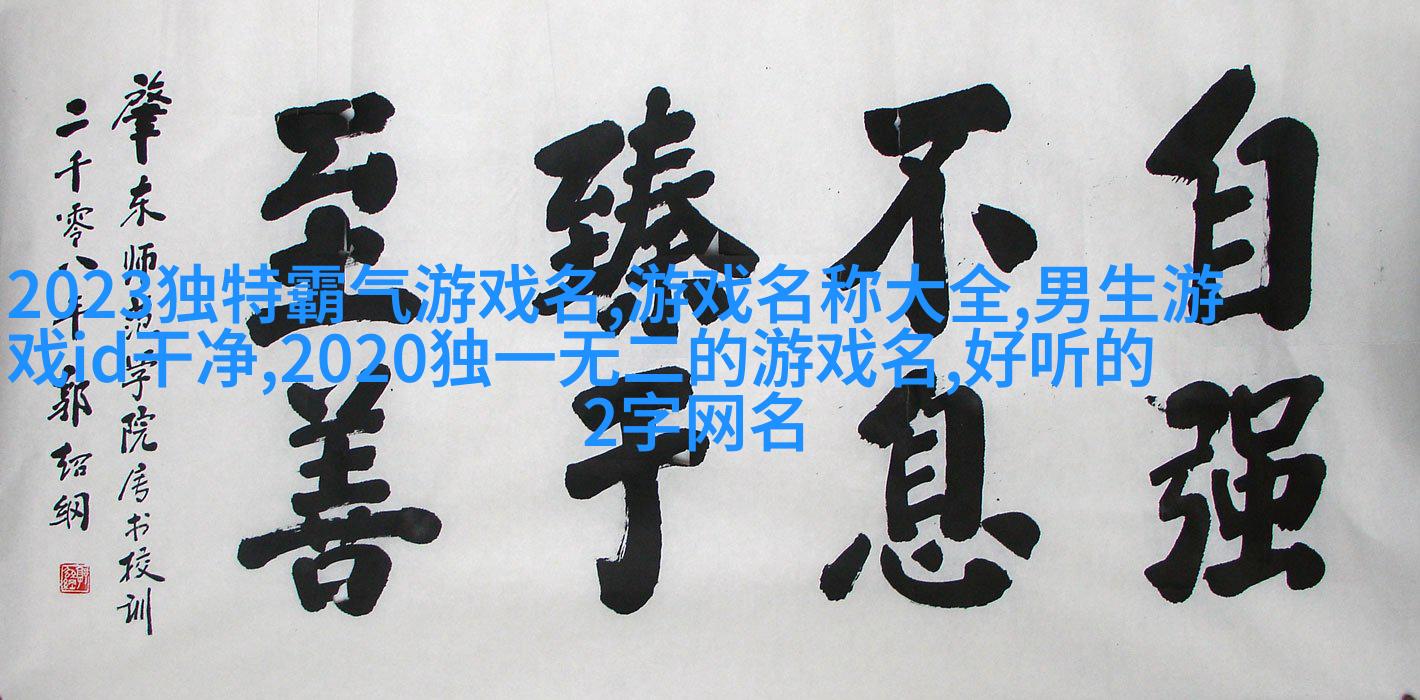 自强
不息
臻于
至善
肇东师范学院属书校训
二千零八年郭绍纲
2023独特霸气游戏名,游戏名称大全,男生游
戏id干净,2020独一无二的游戏名,好听的
2字网名